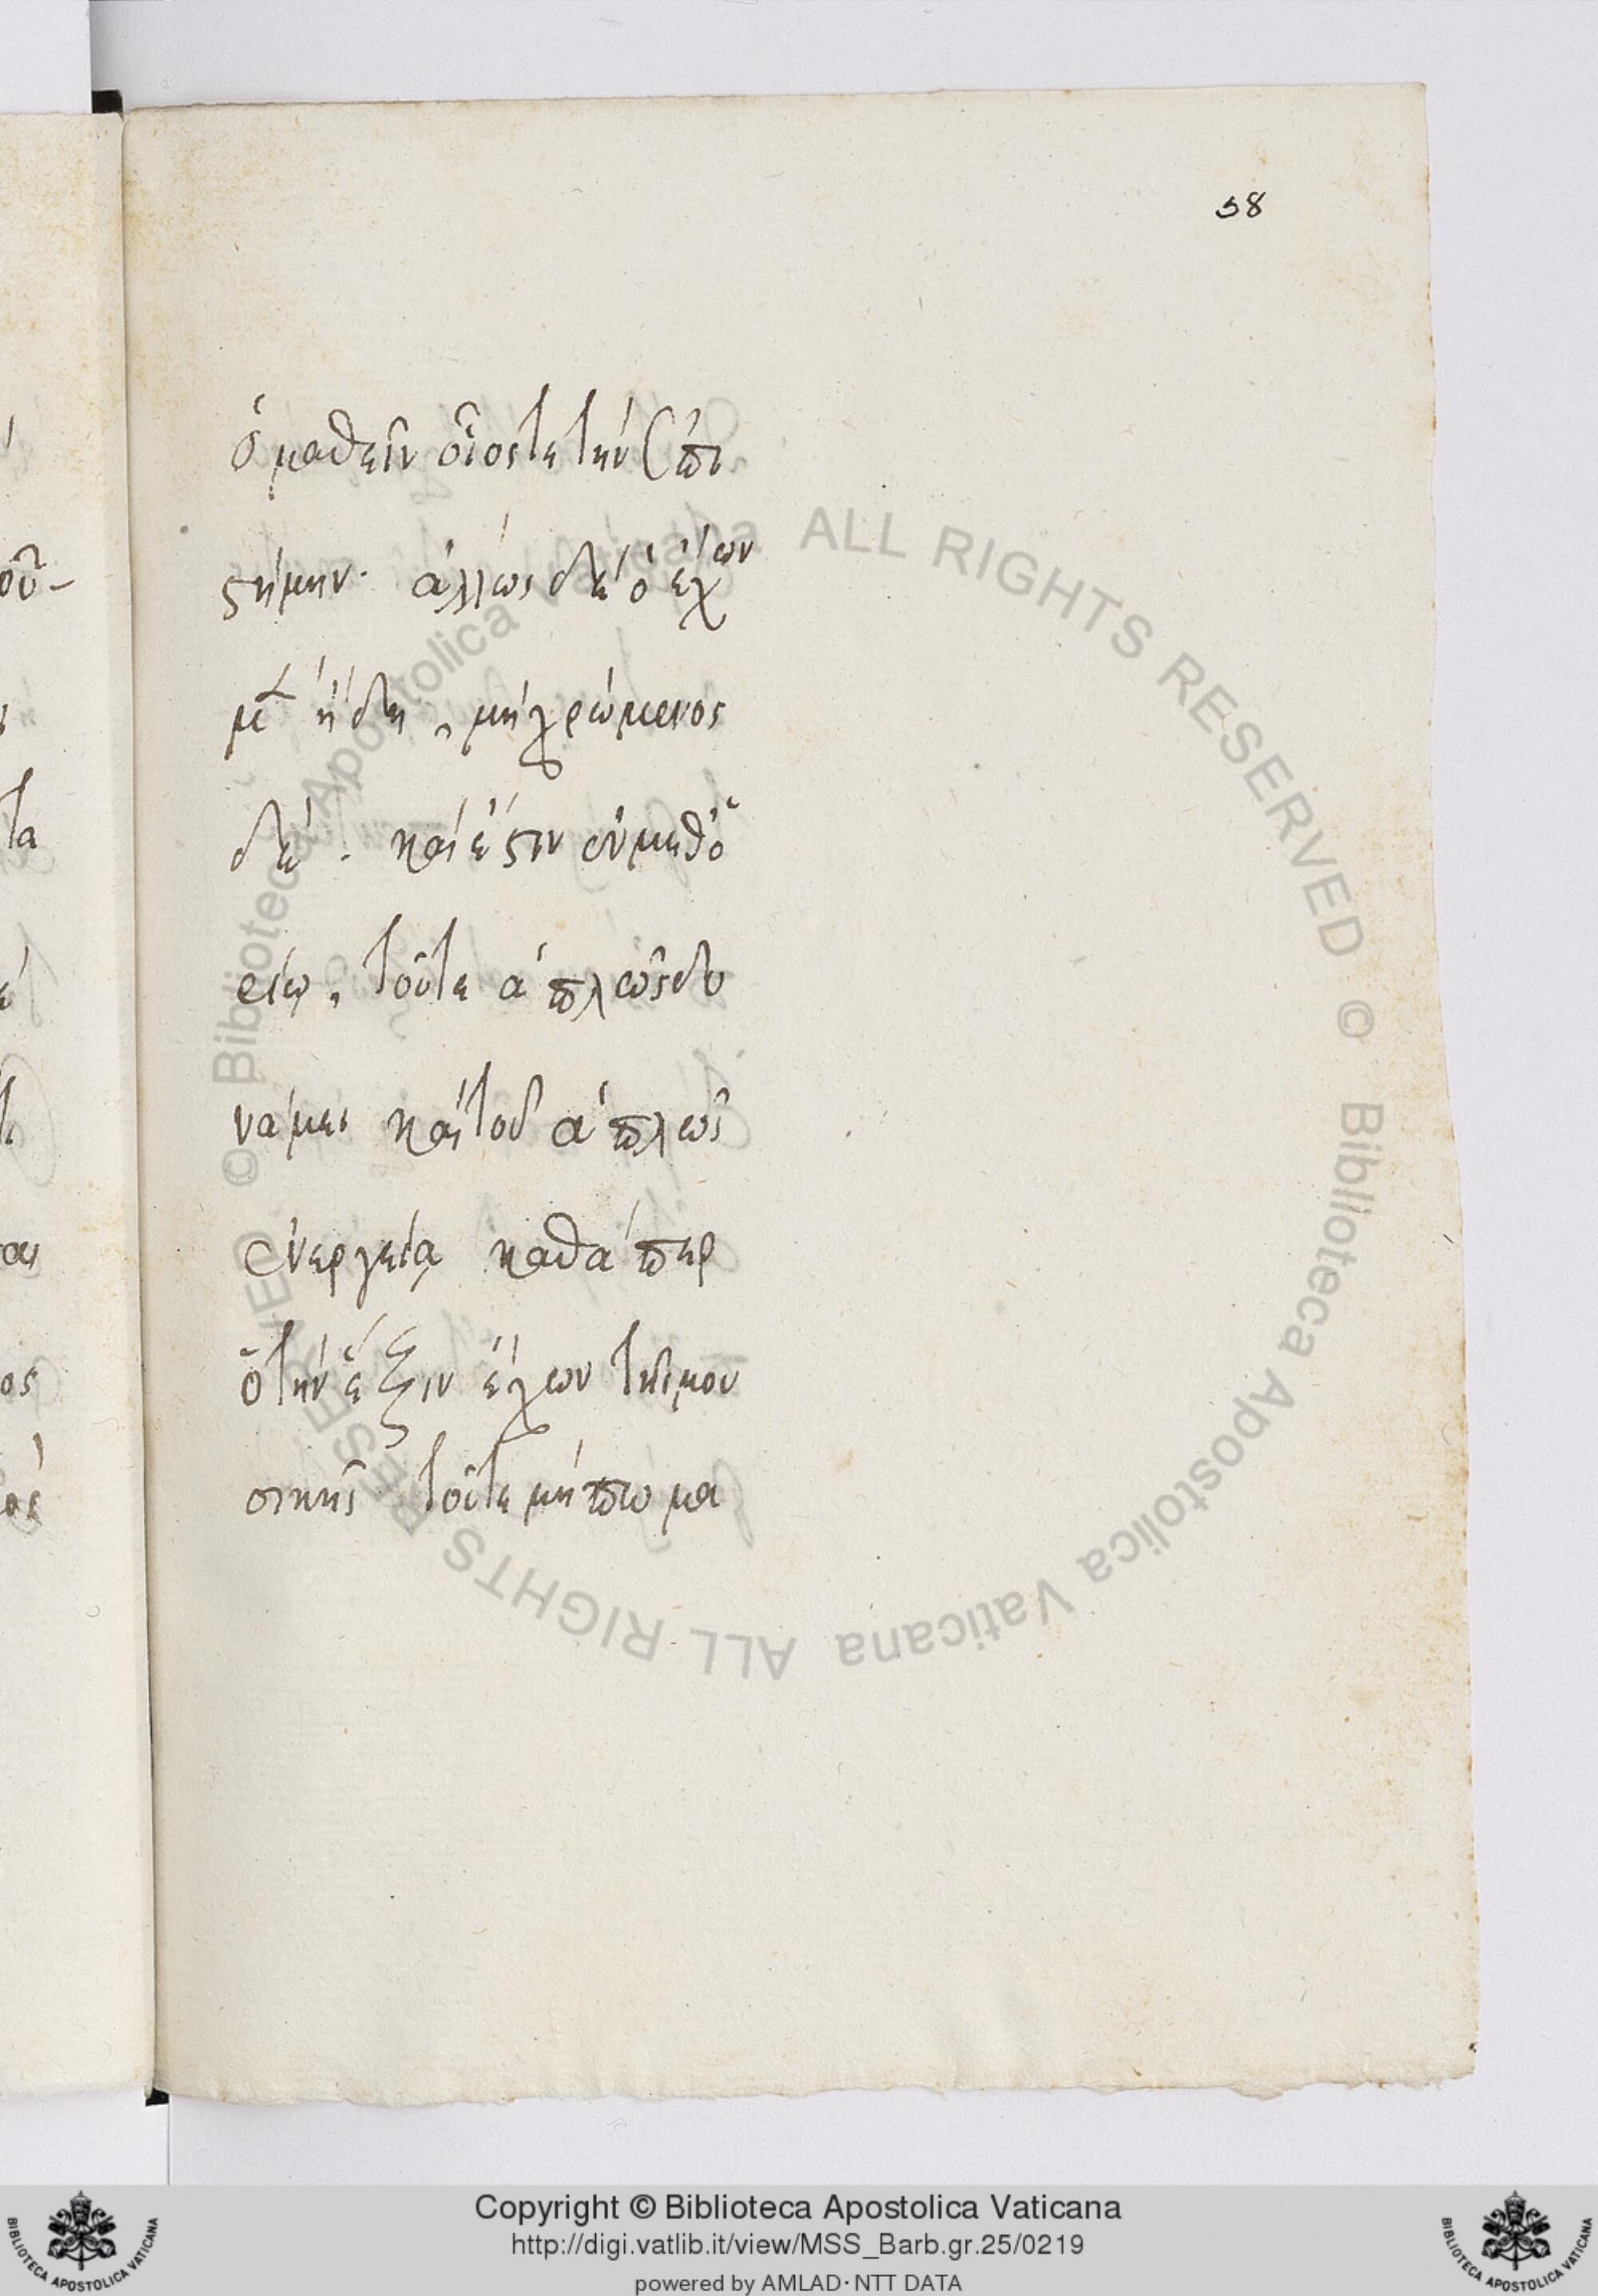 58
ὁ μαθεῖν οἷός τε τὴν ἐπι
στήμην. ἄλλως δὲ ὁ ἔχων
μὲν ἤδη, μὴ χρώμενος
δέ. καὶ ἔστιν ἐν μεθο
ρίῳ, τοῦτε ἁπλῶς δυ
νάμει καὶ τοῦ ἁπλῶς
ἐνεργείᾳ καθάπερ
ὁ τὴν ἕξιν ἔχων τῆς μου
σικῆς τοῦτε μήπω μα
οῦ-
τα
ος
© Biblioteca Apostolica Vaticana ALL RIGHTS RESERVED © Biblioteca Apostolica Vaticana ALL RIGHTS RESERVED
Copyright © Biblioteca Apostolica Vaticana
http://digi.vatlib.it/view/MSS_Barb.gr.25/0219
powered by AMLAD·NTT DATA
BIBLIOTECA APOSTOLICA VATICANA
BIBLIOTECA APOSTOLICA VATICANA